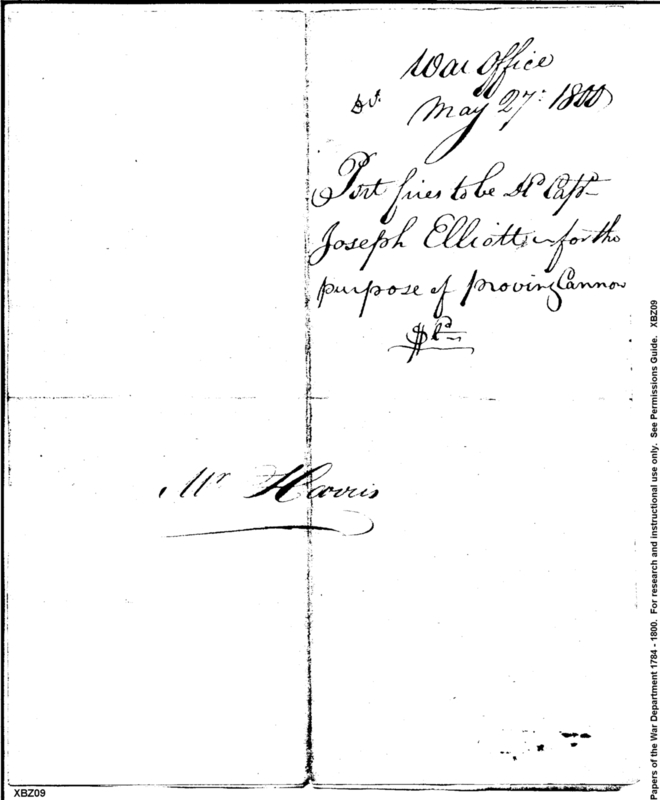 War Office
May 27: 1800
Port fires to be Capt
Joseph Elliott for the
purpose of proving Cannon
Mr Harris
XBZ09
Papers of the War Department 1784 - 1800. For research and instructional use only. See Permissions Guide. XBZ09